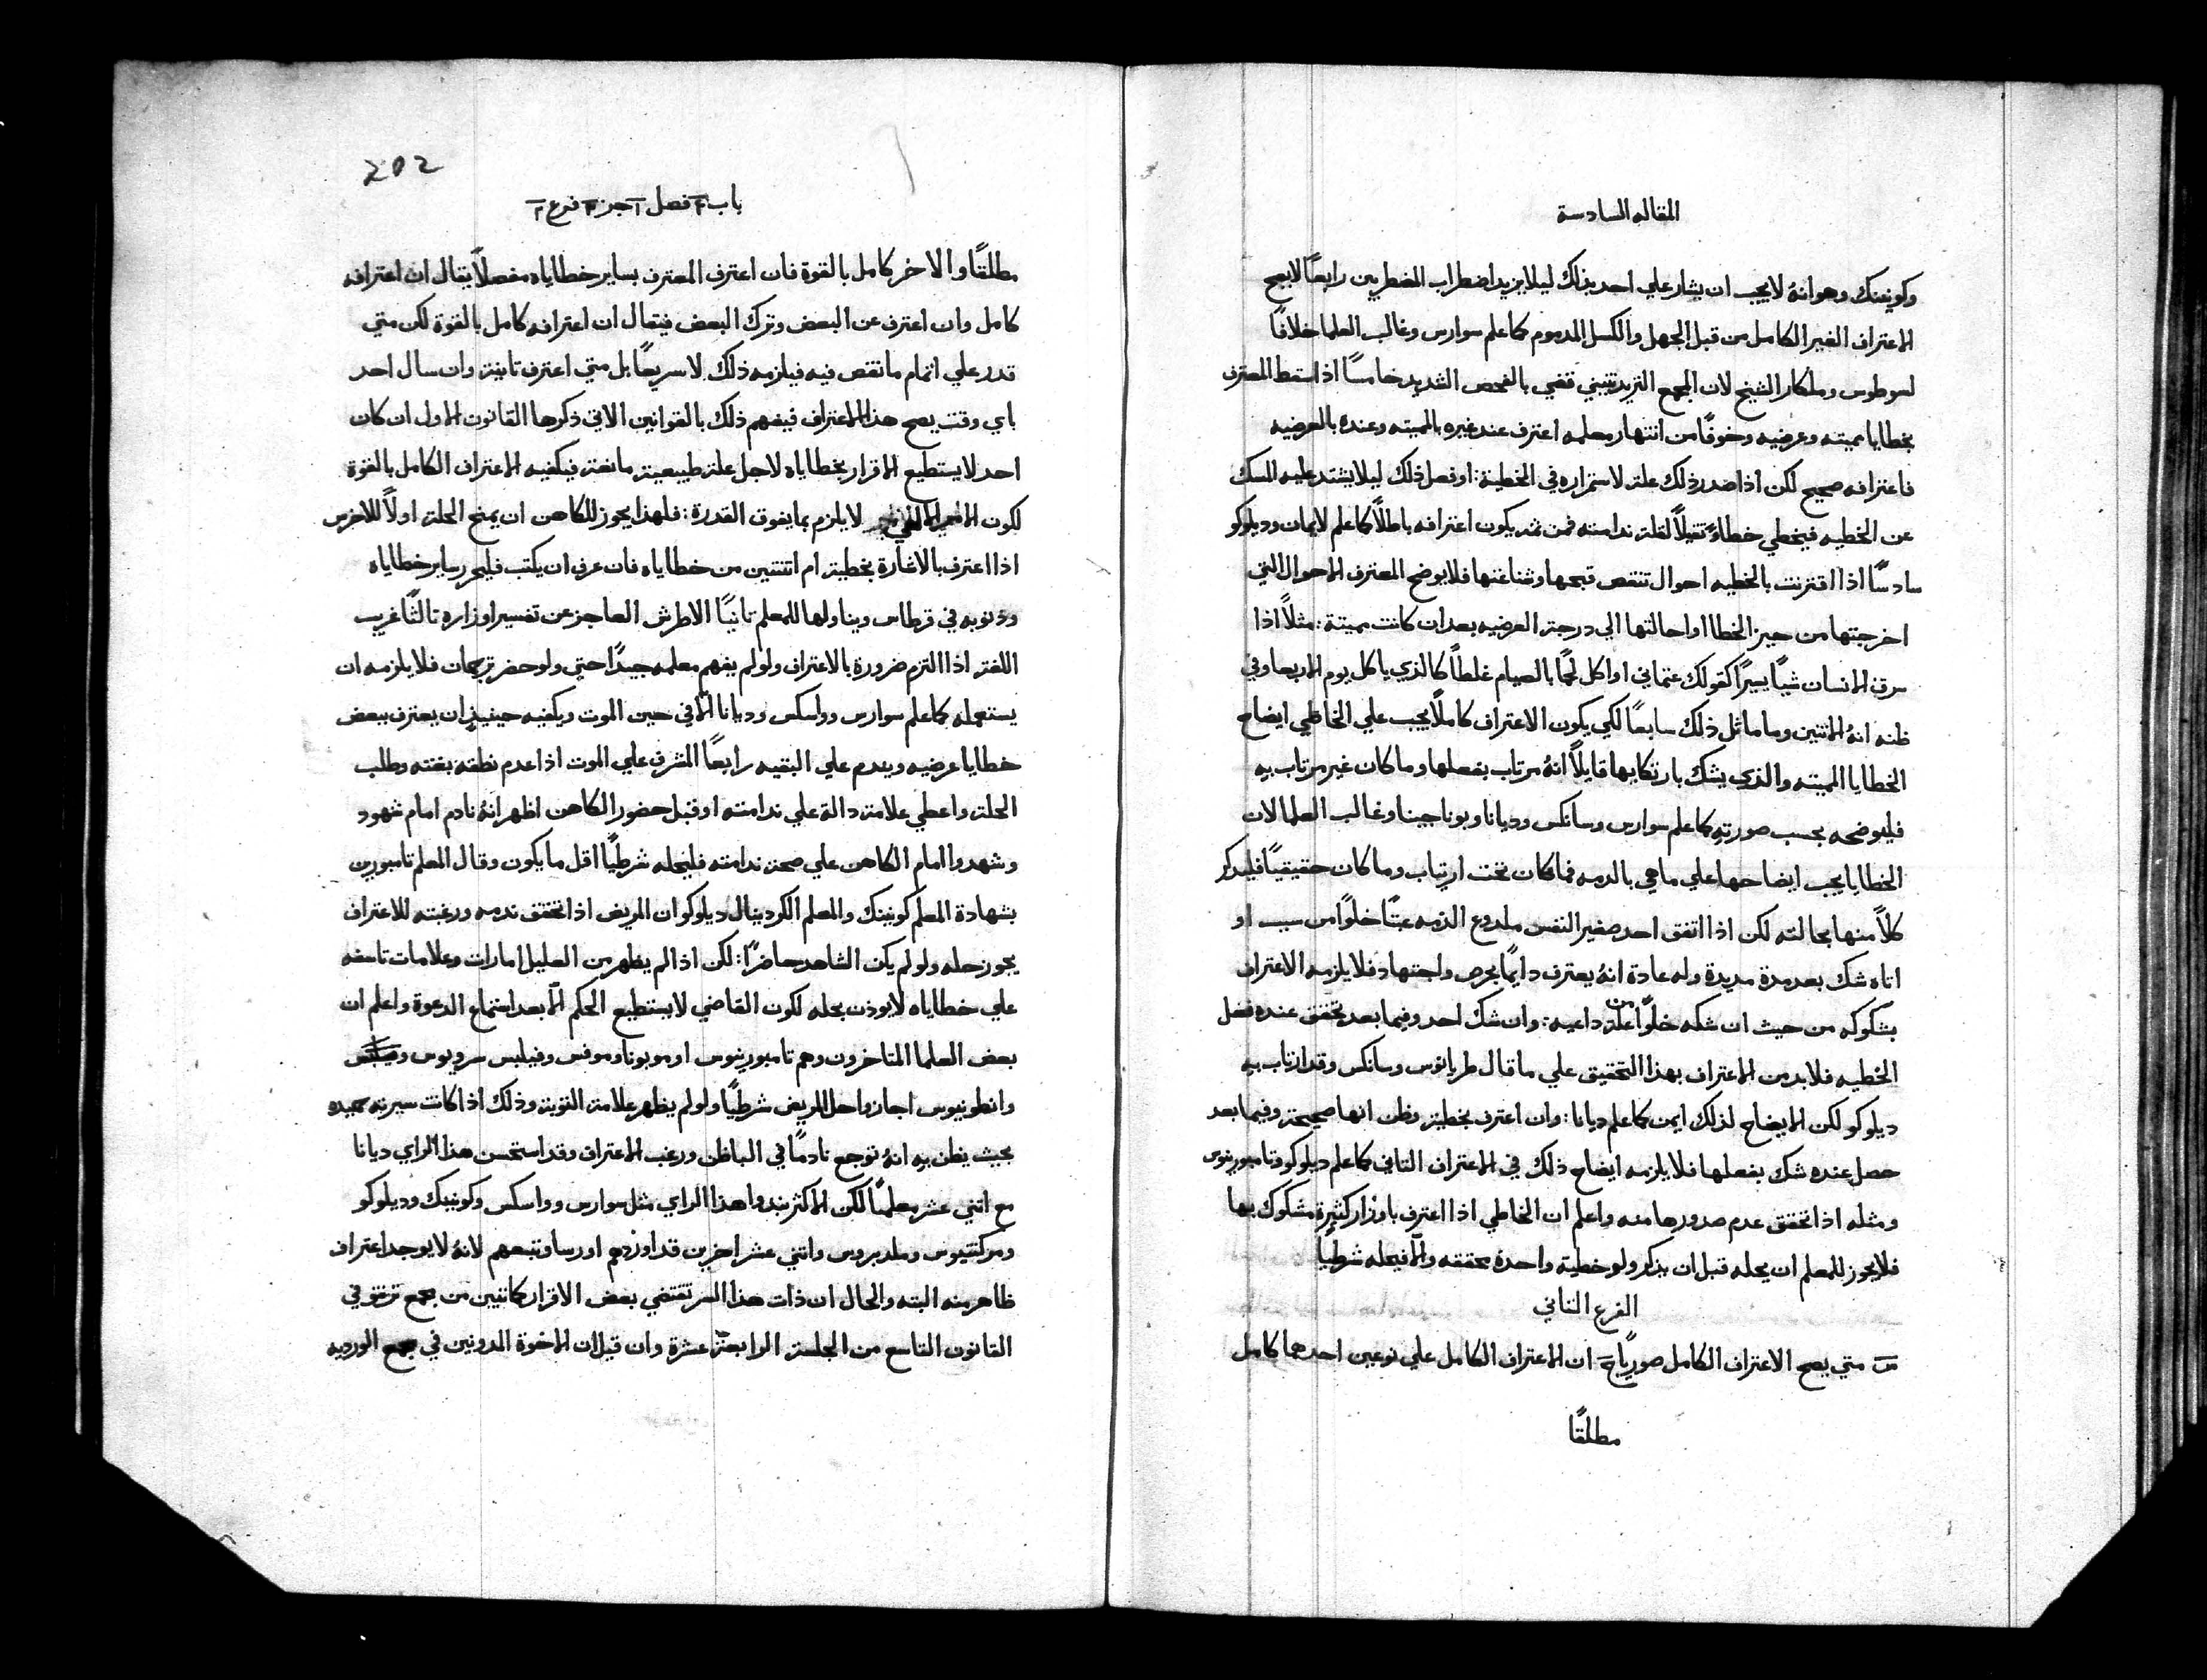 المقاله السادسة
وكونينك وهو انهُ لا يجب ان يشار علي احد بذلك ليلا يزيد اضطراب المضطربين رابعًا لا يصح
الاعتراف الغير الكامل من قبل الجهل والكسل المدموم كما علم سوارس وغالب العلما خلافًا
لموطوس وملكار الشيخ لان المجمع التريدنتيني قضي بالفحص الشديد خامسًا اذا سقط المعترف
بخطايا مميته وعرضيه وخوفًا من انتهار معلمه اعترف عند غيره بالمميته وعنده بالعرضيه
فاعترافه صحيح لكن اذا صدر ذلك علة لاستمراره في الخطية: او فعل ذلك ليلا يشتد عليه المسك
عن الخطيه فيخطي خطاءً ثقيلاً لقلة ندامته فمن ثمه يكون اعترافه باطلاً كما علم لايمان وديلوكو
سادسًا اذا اقترنت بالخطيه احوال تنقص قبحها وشناعتها فلا يوضح المعترف الاحوال التي
اخرجتها من حيز الخطا او احالتها الي درجة العرضيه بعد ان كانت مميتة: مثلاً اذا
سرق الانسان شيًا يسيرًا كقولك عثماني او اكل لحمًا بالصيام غلطًا كالذي ياكل يوم الاربعا وفي
ظنه انهُ الاثنين وما ماثل ذلك سابعًا لكي يكون الاعتراف كاملاً يجب علي الخاطي ايضاح
الخطايا المميته والذي يشك بارتكابها قايلاً انهُ مرتاب بفعلها وما كان غير مرتاب بهِ
فليوضحه بحسب صورتهِ كما علم سوارس وسانكس وديانا وبوناجينا وغالب العلما لان
الخطايا يجب ايضاحها علي ما هي بالدمه فما كان تحت ارتياب وما كان حقيقيًا فليدكر
كلاً منها بحالته لكن اذا اتفق احد صغير النفس ملدوع الذمه عبثًا خلوًا من سبب او
اتاه شك بعد مدة مديدة وله عادة انهُ يعترف دايمًا بحرص واجتهاد فلا يلزمه الاعتراف
بشكوكه من حيث ان شكه خلوًا من علة داعيه: وان شك احد وفيما بعد تحقق عنده فعل
الخطيه فلا بد من الاعتراف بهذا التحقيق علي ما قال طربانوس وسانكس وقد ارتاب بهِ
ديلوكو لكن الايضاح لذلك ايمن كما علم ديانا: وان اعترف بخطية وظن انها صحيحة وفيما بعد
حصل عنده شك بفعلها فلا يلزمه ايضاح ذلك في الاعتراف الثاني كما علم ديلوكو وتامبورينوس
ومثله اذا تحقق عدم صدورها منه واعلم ان الخاطي اذا اعترف باوزار كثيرة مشكوك بها
فلا يجوز للمعلم ان يحله قبل ان يذكر ولو خطيته واحدة محققه والا فيحله شرطيًا
الفرع الثاني
س متي يصح الاعتراف الكامل صوريًا ج ان الاعتراف الكامل علي نوعين احدهما كامل
مطلقًا
202
باب ٤ فصل ١ جز ٣ فرع ٢
مطلقًا والاخر كامل بالقوة فان اعترف المعترف بساير خطاياه مفصلاً يقال ان اعترافه
كامل وان اعترف عن البعض وترك البعض فيقال ان اعترافه كامل بالقوة لكن متي
قدر علي اتمام ما نقص فيه فيلزمه ذلك لا سريعًا بل متي اعترف ثانية وان سال احد
باي وقت يصح هذا الاعتراف فيفهم ذلك بالقوانين الاتي ذكرها القانون الاول ان كان
احد لا يستطيع الاقرار بخطاياه لاجل علة طبيعية مانعة فيكفيه الاعتراف الكامل بالقوة
لكون الامر الالهي لا يلزم بما يفوق القدرة: فلهذا يجوز للكاهن ان يمنح الحلة اولاً للاخرس
اذا اعترف بالاشارة بخطية ام اثنتين من خطاياه فان عرف ان يكتب فليحرر ساير خطاياه
وذنوبه في قرطاس ويناولها للمعلم ثانيًا الاطرش العاجز عن تفسير اوزاره ثالثًا غريب
اللغة اذا التزم ضرورة بالاعتراف ولو لم يفهم معلمه جيدًا حتي ولو حضر ترجمان فلا يلزمه ان
يستعمله كما علم سوارس وواسكس وديانا الا في حين الموت ويكفيه حينيذٍ ان يعترف ببعض
خطايا عرضيه ويندم علي البقيه رابعًا المشرف علي الموت اذا عدم نطقه بغته وطلب
الحلة واعطي علامة دالة علي ندامته او قبل حضور الكاهن اظهر انهُ نادم امام شهود
وشهدوا امام الكاهن علي صحة ندامته فليحله شرطيًا اقل ما يكون وقال المعلم تامبورين
بشهادة المعلم كونينك والمعلم الكردينال ديلوكو ان المريض اذا تحقق ندمه ورغبته للاعتراف
يجوز حله ولو لم يكن الشاهد حاضرًا: لكن اذا لم يظهر من العليل امارات وعلامات تاسفه
علي خطاياه لا يوذن بحله لكون القاضي لا يستطيع الحكم الا بعد استماع الدعوة واعلم ان
بعض العلما المتاخرون وهم تامبورينوس اوموبونا وموفس وفيلبس سرويوس
وانطونيوس اجازوا حل المريض شرطيًا ولو لم يظهر علامة التوبة وذلك اذا كانت سيرته حميده
بحيث يظن بهِ انهُ توجع نادمًا في الباطن ورغب الاعتراف وقد استحسن هذا الراي ديانا
مع اثني عشر معلمًا لكن الاكثر نبدوا هذا الراي مثل سوارس وواسكس وكونينك وديلوكو
ومركنتيوس وملديروس واثني عشر اخرين قد اوردهم اورسا وتبعهم لانهُ لا يوجد اعتراف
ظاهر منه البته والحال ان ذات هذا السر تقتضي بعض الاقرار كما تبين من مجمع ترنتو في
القانون التاسع من الجلسة الرابعة عشرة وان قيل ان الاخوة المدونين في جمع الورديه